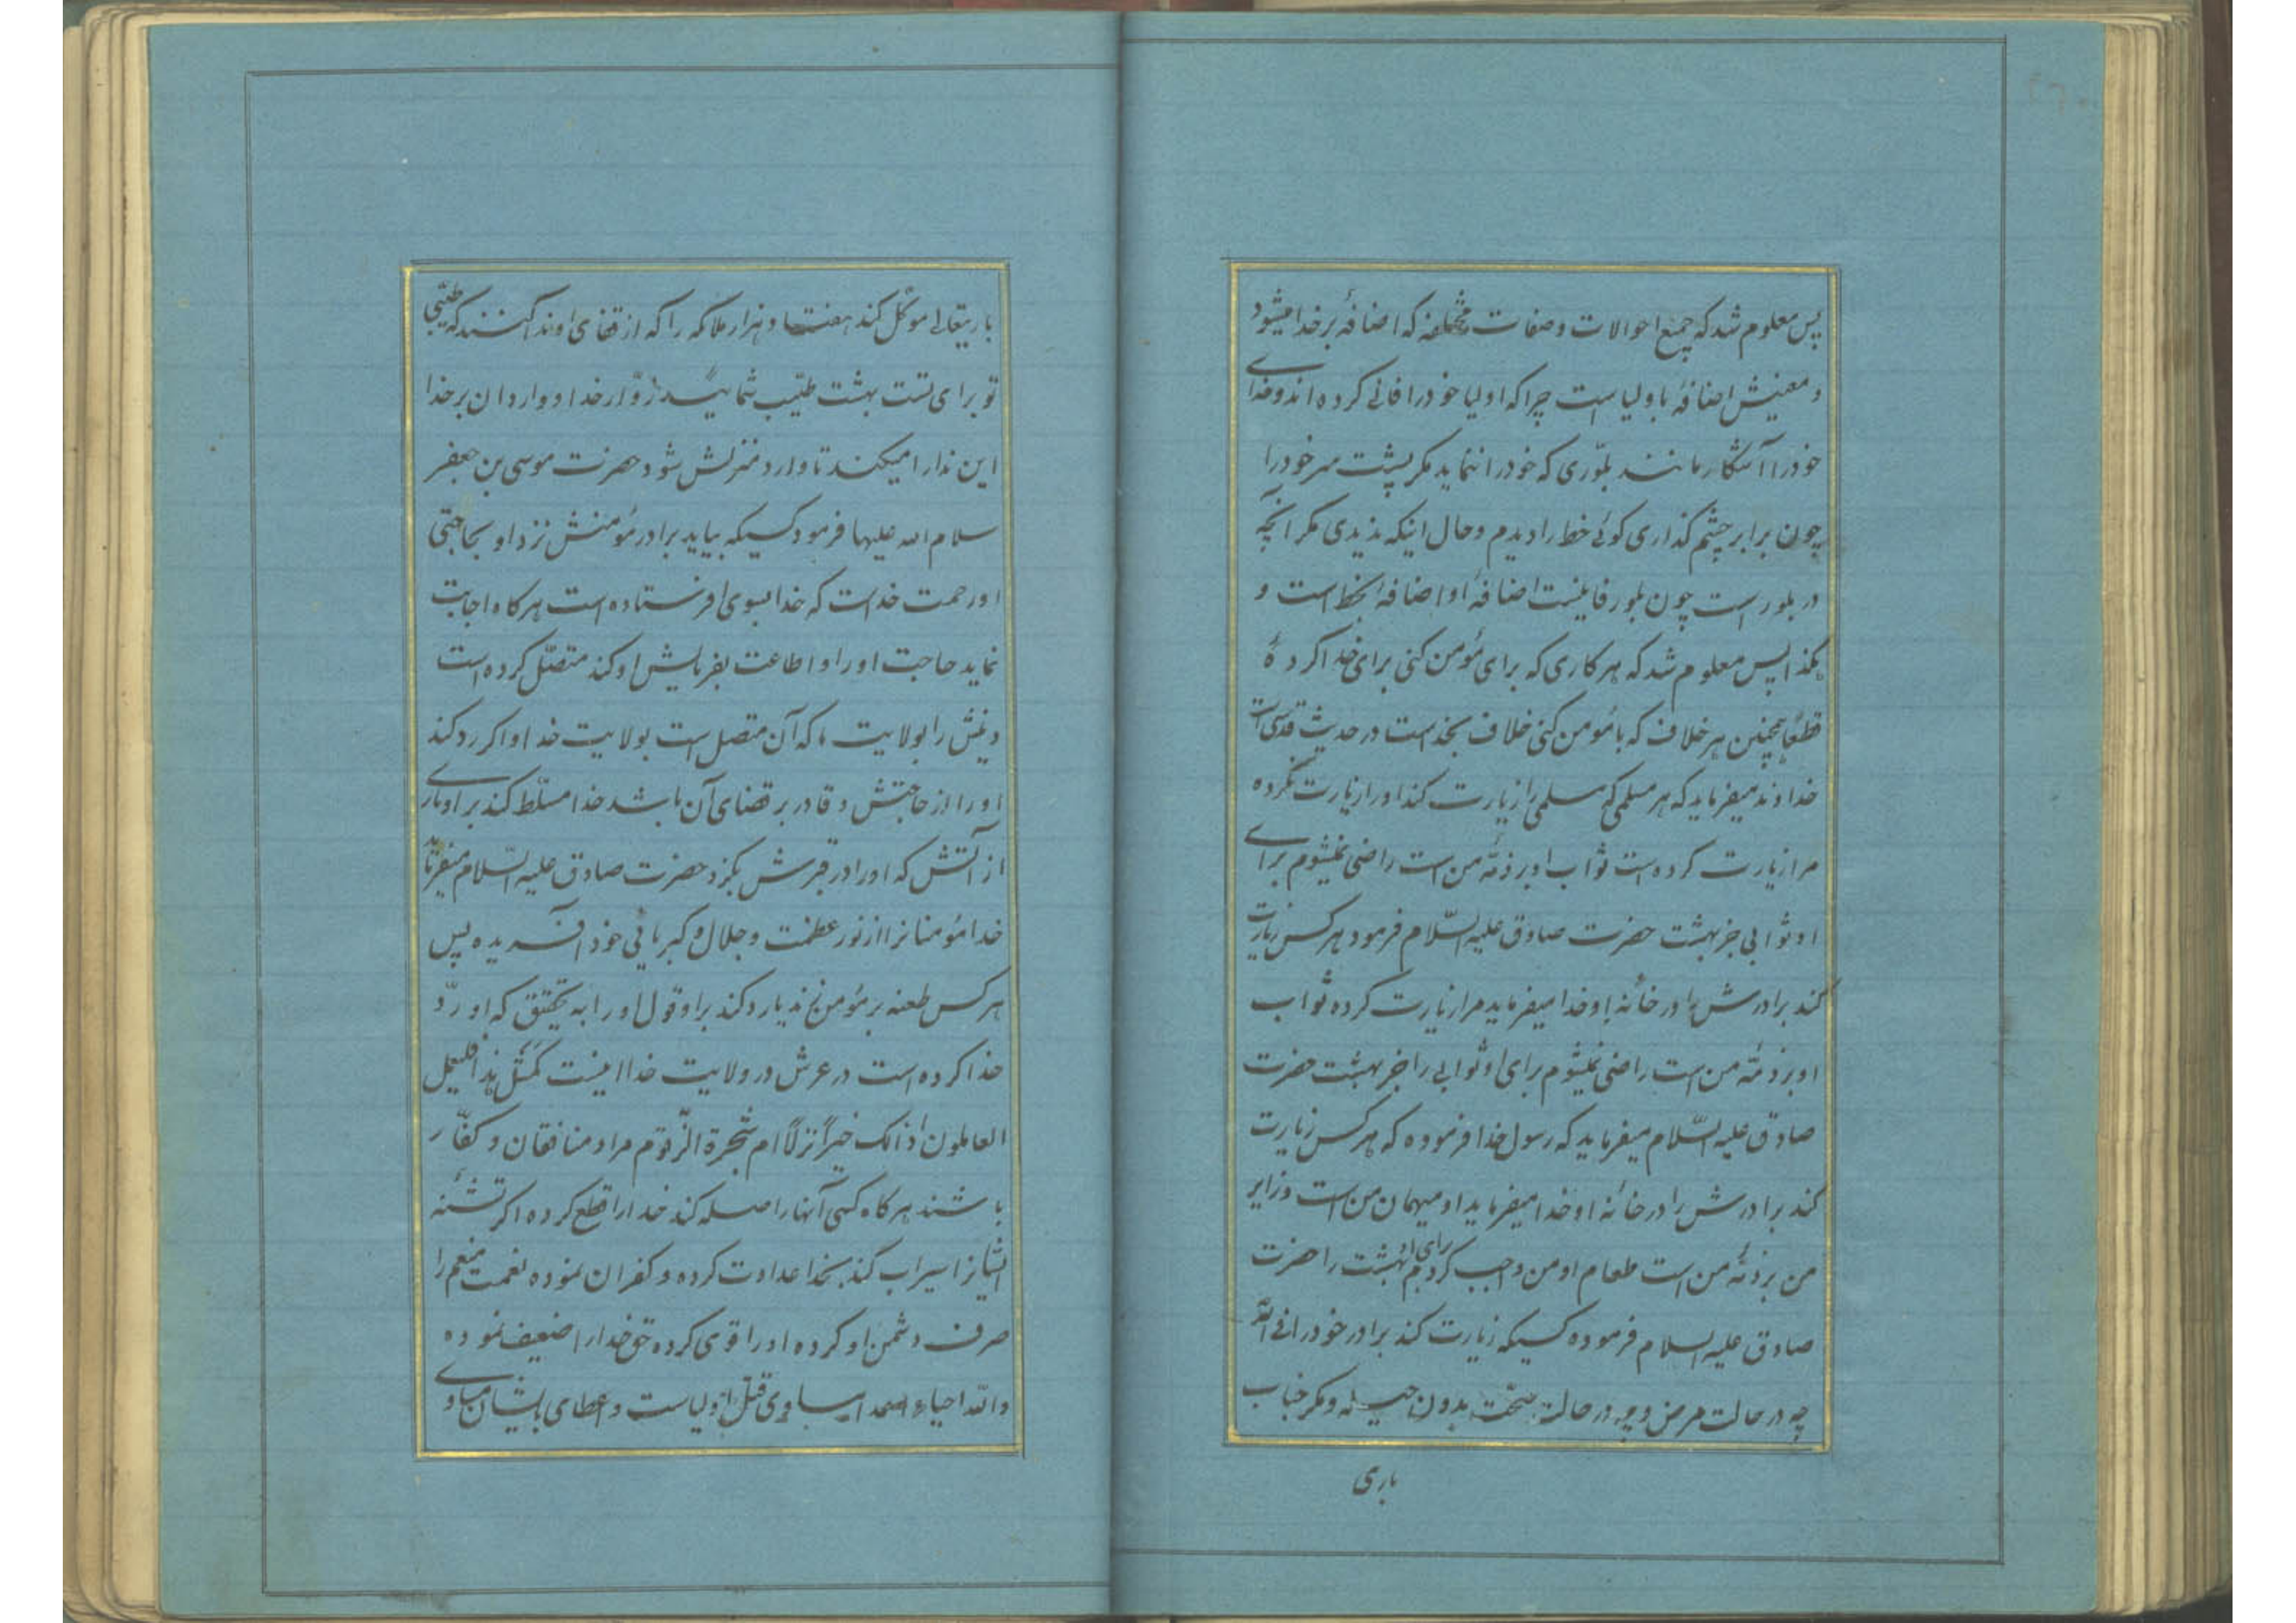 پس معلوم شد که جمیع احوالات و صفات مختلفه که اضافهٔ بر خدا میشود
و معنیش اضافهٔ باولیا است چرا که اولیا خود را فانی کرده‌اند و خدای
خود را آشکار مانند بلّوری که خود را ننماید مکر پشت سر خود را
چون برابر چشم کذاری کوئی خط را دیدم و حال اینکه ندیدی مکر آنچه
در بلور است چون بلور فانیست اضافهٔ او اضافهٔ بخط است و
هکذا پس معلوم شد که هر کاری که برای مؤمن کنی برای خدا کردهٔ
قطعاً همچنین هر خلاف که با مؤمن کنی خلاف بخداست در حدیث قدسی است
خداوند میفرماید که هر مسلمی که مسلمی را زیارت کند او را زیارت نکرده
مرا زیارت کرده است ثواب او بر ذمّهٔ من است راضی نمیشوم برای
او ثوابی جز بهشت حضرت صادق علیه السّلام فرمود هر کس زیارت
کند برادرش را در خانهٔ او خدا میفرماید مرا زیارت کرده ثواب
او بر ذمّهٔ من است راضی نمیشوم برای او ثوابی را جز بهشت حضرت
صادق علیه السّلام میفرماید که رسول خدا فرموده که هر کس زیارت
کند برادرش را در خانهٔ او خدا میفرماید او میهمان من است و زایر
من بر ذمّهٔ من است طعام او من واجب کردم برای او بهشت را حضرت
صادق علیه السلام فرموده کسیکه زیارت کند برادر خود را فی اللّه
چه در حالت مرض و چه در حالت صحّت بدون حیله و مکر جناب
باری
باریتعالی موکّل کند هفتاد هزار ملائکه را که از قفای او ندا کنند که طیّبی
تو برای تست بهشت طیّب شمائید زوّار خدا و واردان بر خدا
این ندا را میکنند تا وارد منزلش شود حضرت موسی بن جعفر
سلام الله علیهما فرمود کسیکه بیاید برادر مؤمنش نزد او بحاجتی
او رحمت خداست که خدا بسوی او فرستاده است هرکاه اجابت
نماید حاجت او را و اطاعت بفرمایش او کند متصّل کرده است
دینش را بولایت ما که آن متصل است بولایت خدا و اکر رد کند
او را از حاجتش و قادر بر قضای آن باشد خدا مسلّط کند بر او ماری
از آتش که او را در قبرش بکزد حضرت صادق علیه السّلام میفرماید
خدا مؤمنانرا از نور عظمت و جلال و کبریائی خود آفریده پس
هر کس طعنه بر مؤمن زند یا رد کند بر او قول او را به تحقیق که او ردّ
خدا کرده است در عرش در ولایت خدا نیست کمثل هذا فلیعمل
العاملون اذالک خیراً نزلاً ام شجرة الزّقوم مراد منافقان و کفّار
باشند هرکاه کسی آنها را صله کند خدا را قطع کرده اکر تشنهٔ
ایشانرا سیراب کند بخدا عداوت کرده و کفران نموده نعمت منعم را
صرف دشمن او کرده او را قوی کرده حق خدا را ضعیف نموده
والله احیاء اعداء مساوی قتل اولیاست و اعطای بایشان مساوی